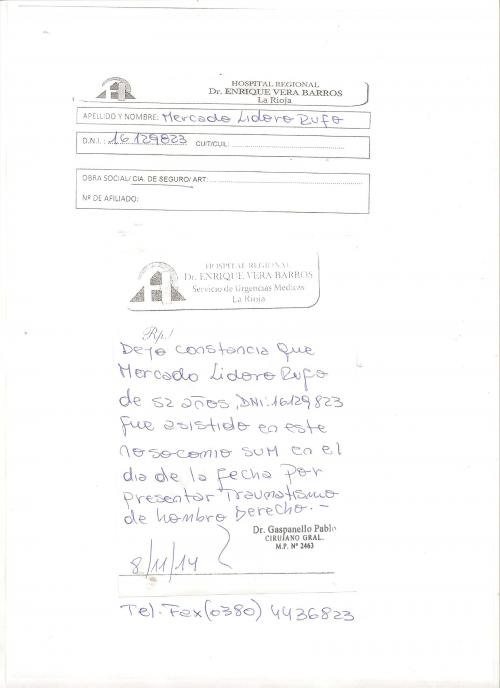 HOSPITAL REGIONAL
Dr. ENRIQUE VERA BARROS
La Rioja
APELLIDO Y NOMBRE: Mercado Lidoro Rufo
D.N.I.: 16129823 CUIT/CUIL:
OBRA SOCIAL/ CIA. DE SEGURO/ ART:
Nº DE AFILIADO:
HOSPITAL REGIONAL
Dr. ENRIQUE VERA BARROS
Servicio de Urgencias Medicas
La Rioja
Rp./
Dejo constancia que
Mercado Lidoro Rufo
de 52 años, DNI: 16129823
fue asistido en este
nosocomio SUM en el
dia de la fecha por
presentar Traumatismo
de hombro Derecho.-
Dr. Gaspanello Pablo
CIRUJANO GRAL.
M.P. Nº 2463
8/11/14
Tel. Fax (0380) 4436823